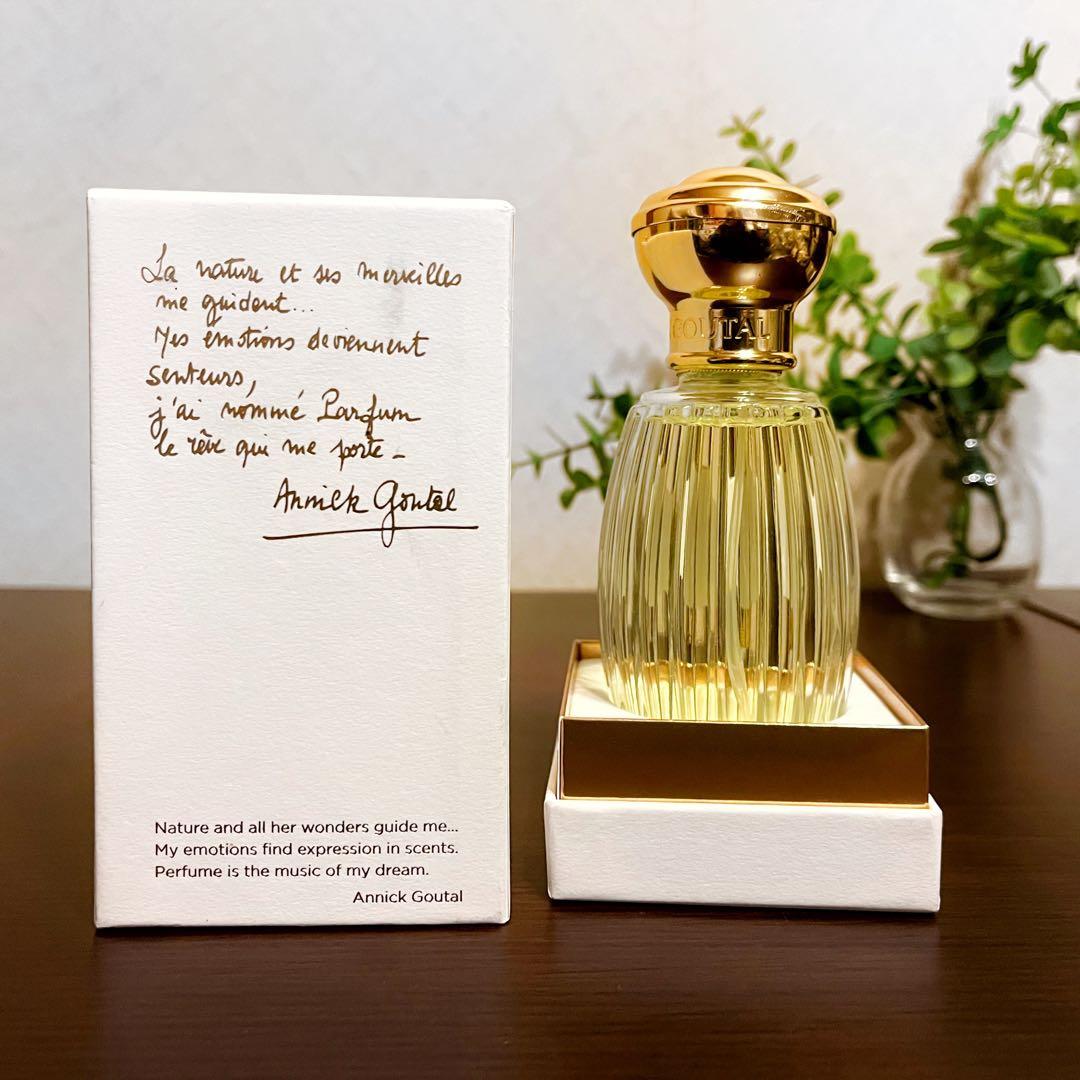 La nature et ses merveilles
me guident...
Mes émotions deviennent
senteurs,
j'ai nommé Parfum
le rêve qui me porte -
Annick Goutal
Nature and all her wonders guide me...
My emotions find expression in scents.
Perfume is the music of my dream.
Annick Goutal
GOUTAL